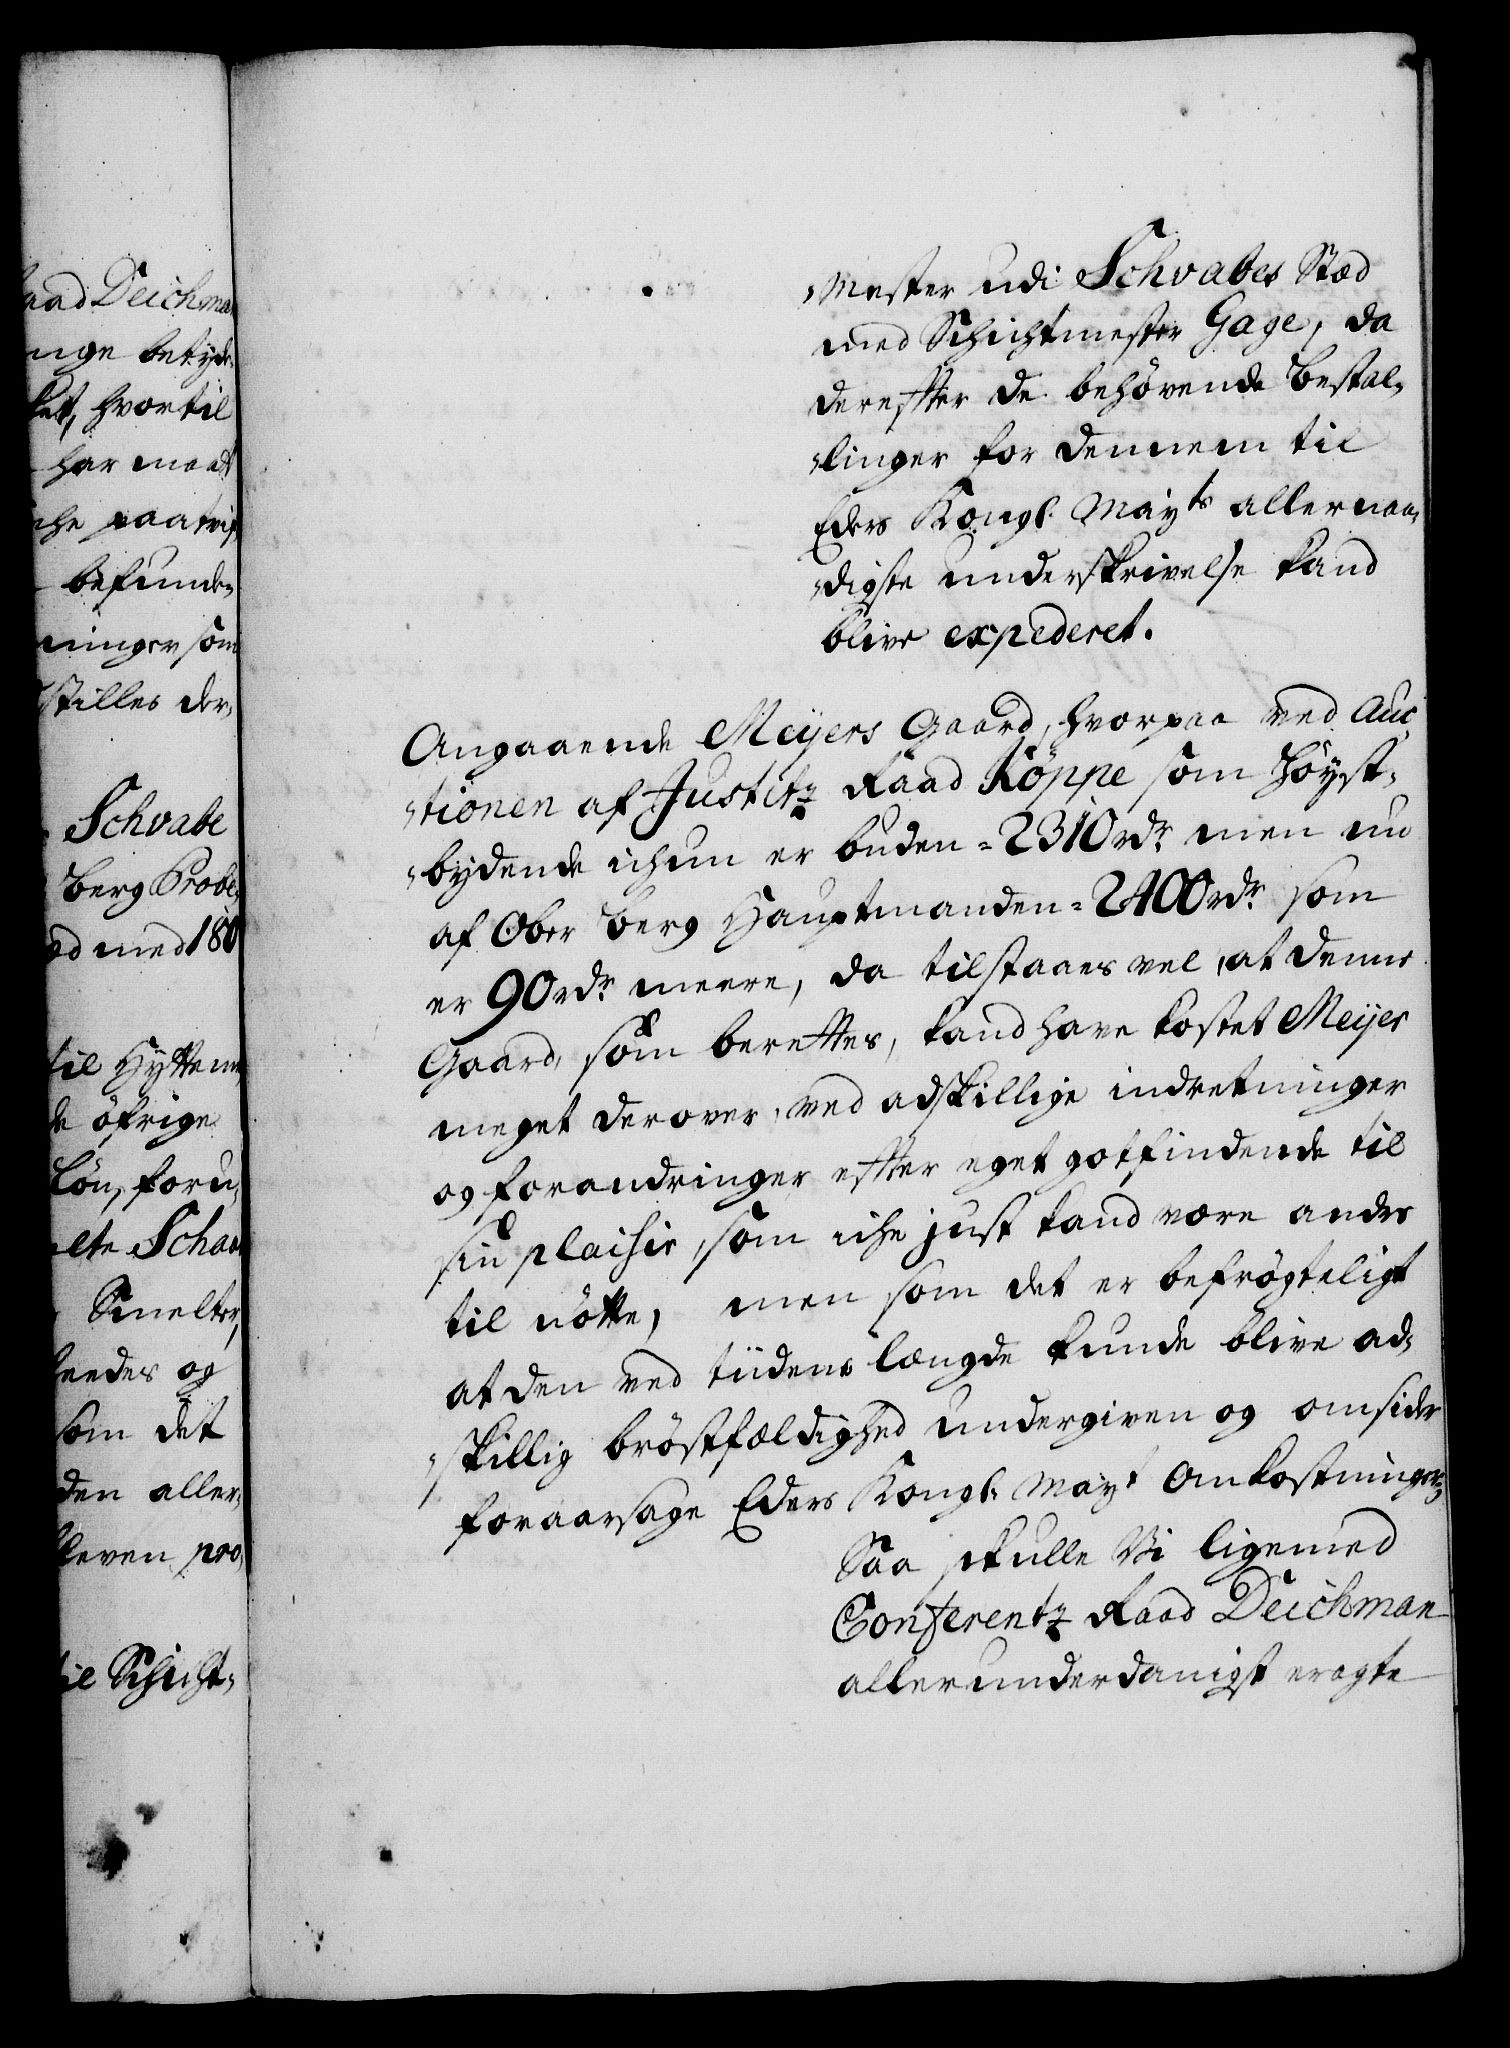 aad Deichma
nge betyde-
ket, hvortil
har maadt
befunde-
ninger som
stilles der-
Schvabe
Berg Probe-
ed med 180
til Hytteme
de öfrige
Lön, foru-
elte Scha
Smelter,
leedes og
som det
den aller-
bleven pro-
til Schicht-
-mester udi Schvabes Stæd
med Schichtmester Gage, da
derefter de behövende Bestal-
-linger for dennem til
Eders Kongl. Mayts allernaa-
-digste underskrivelse kand
blive expederet.
Angaaende Meijers Gaard, hvorpaa ved Auc
-tionen af Justitz Raad Köppe som höyst-
-bydende ichun er buden = 2310 rdr. men nu
af Ober Berg Hauptmanden = 2400 rdr. som
er 90 rdr. meere, da tilstaaes vel, at denne
Gaard, som berettes, kand have kostet Meijer
meget derover, ved adskillige indretninger
og forandringer efter eget gotfindende til
sin plaisir, som iche just kand være andre
til nötte, men som det er befrögteligt
at den ved tiidens længde kunde blive ad-
-skillig bröstfældighed undergiven og omsider
foraarsage Eders Kongl. Mayt Ankostninger;
Saa skulle Vi ligemed
Conferentz Raad Deichman
allerunderdanigst eragte